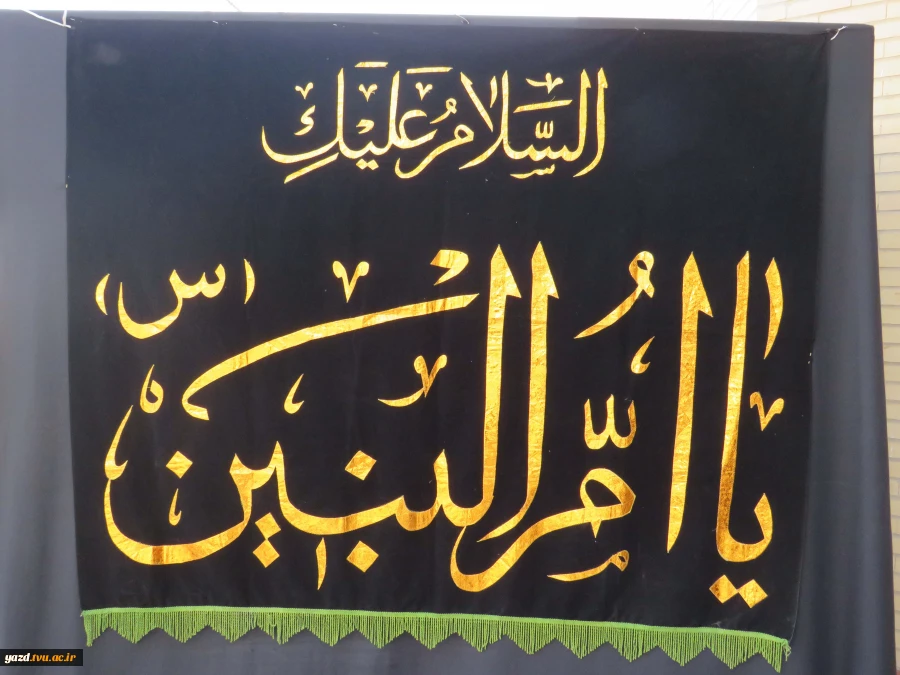 السَّلامُ عَلَيْكِ
يا اُمَّ الْبَنين (س)
yazd.tvu.ac.ir